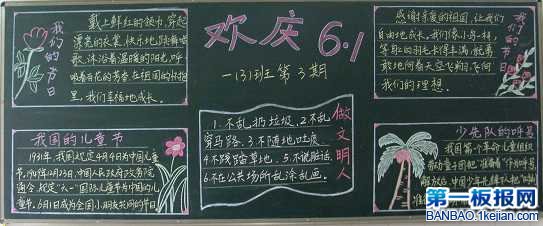 欢庆6.1
一(3)班 第3期
我们的节日
戴上鲜红的领巾,穿起
漂亮的衣裳,快乐地跳舞唱
歌,沐浴着温暖的阳光,呼
吸着百花的芳香,在祖国的怀抱
里,我们幸福地成长。
我国的儿童节
1931年,我国规定4月4日为中国儿童
节,1949年12月23日,中国人民政府政务院
通令,规定"六一"国际儿童节为中国的儿
童节,6月1日成为全国小朋友共同的节日
做文明人
1.不乱扔垃圾.2.不乱
穿马路.3.不随地吐痰
4.不践踏草地.5.不说脏话.
6.不在公共场所乱涂乱画.
我们的节日
感谢亲爱的祖国,让我们
自由地成长。我们像小鸟一样,
等身上的羽毛长丰满,就勇
敢地向着天空飞翔,飞向
我们的理想。
少先队的呼号
我国第一个革命儿童组织
劳动童子团把"准备着"作为呼号,
解放后,中国少年儿童队把"时刻准
第一板报网
BANBAO.1kejian.com